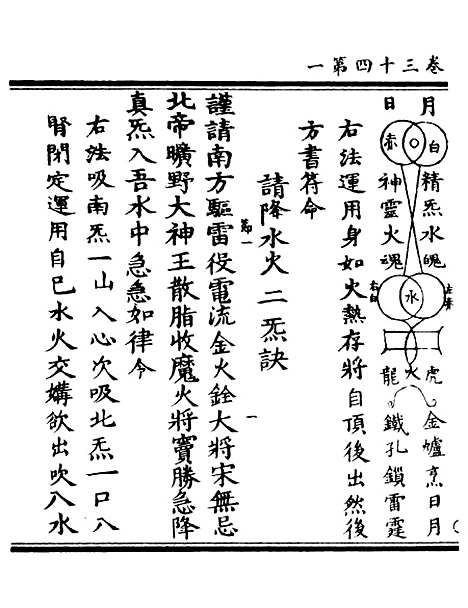 卷三十四第一
月
日
白
赤
精炁水魄
神靈火魂
左青
右白
水
虎
火
龍
金爐烹日月
鐵孔鎖雷霆
右法運用身如火熱存將自頂後出然後
方書符命
請降水火二炁訣
第一
謹請南方驅雷役電流金火銓大將宋無忌
北帝曠野大神王散脂收魔火將竇勝急降
真炁入吾水中急急如律令
右法吸南炁一山入心次吸北炁一口八
腎閉定運用自巳水火交媾欲出吹八水